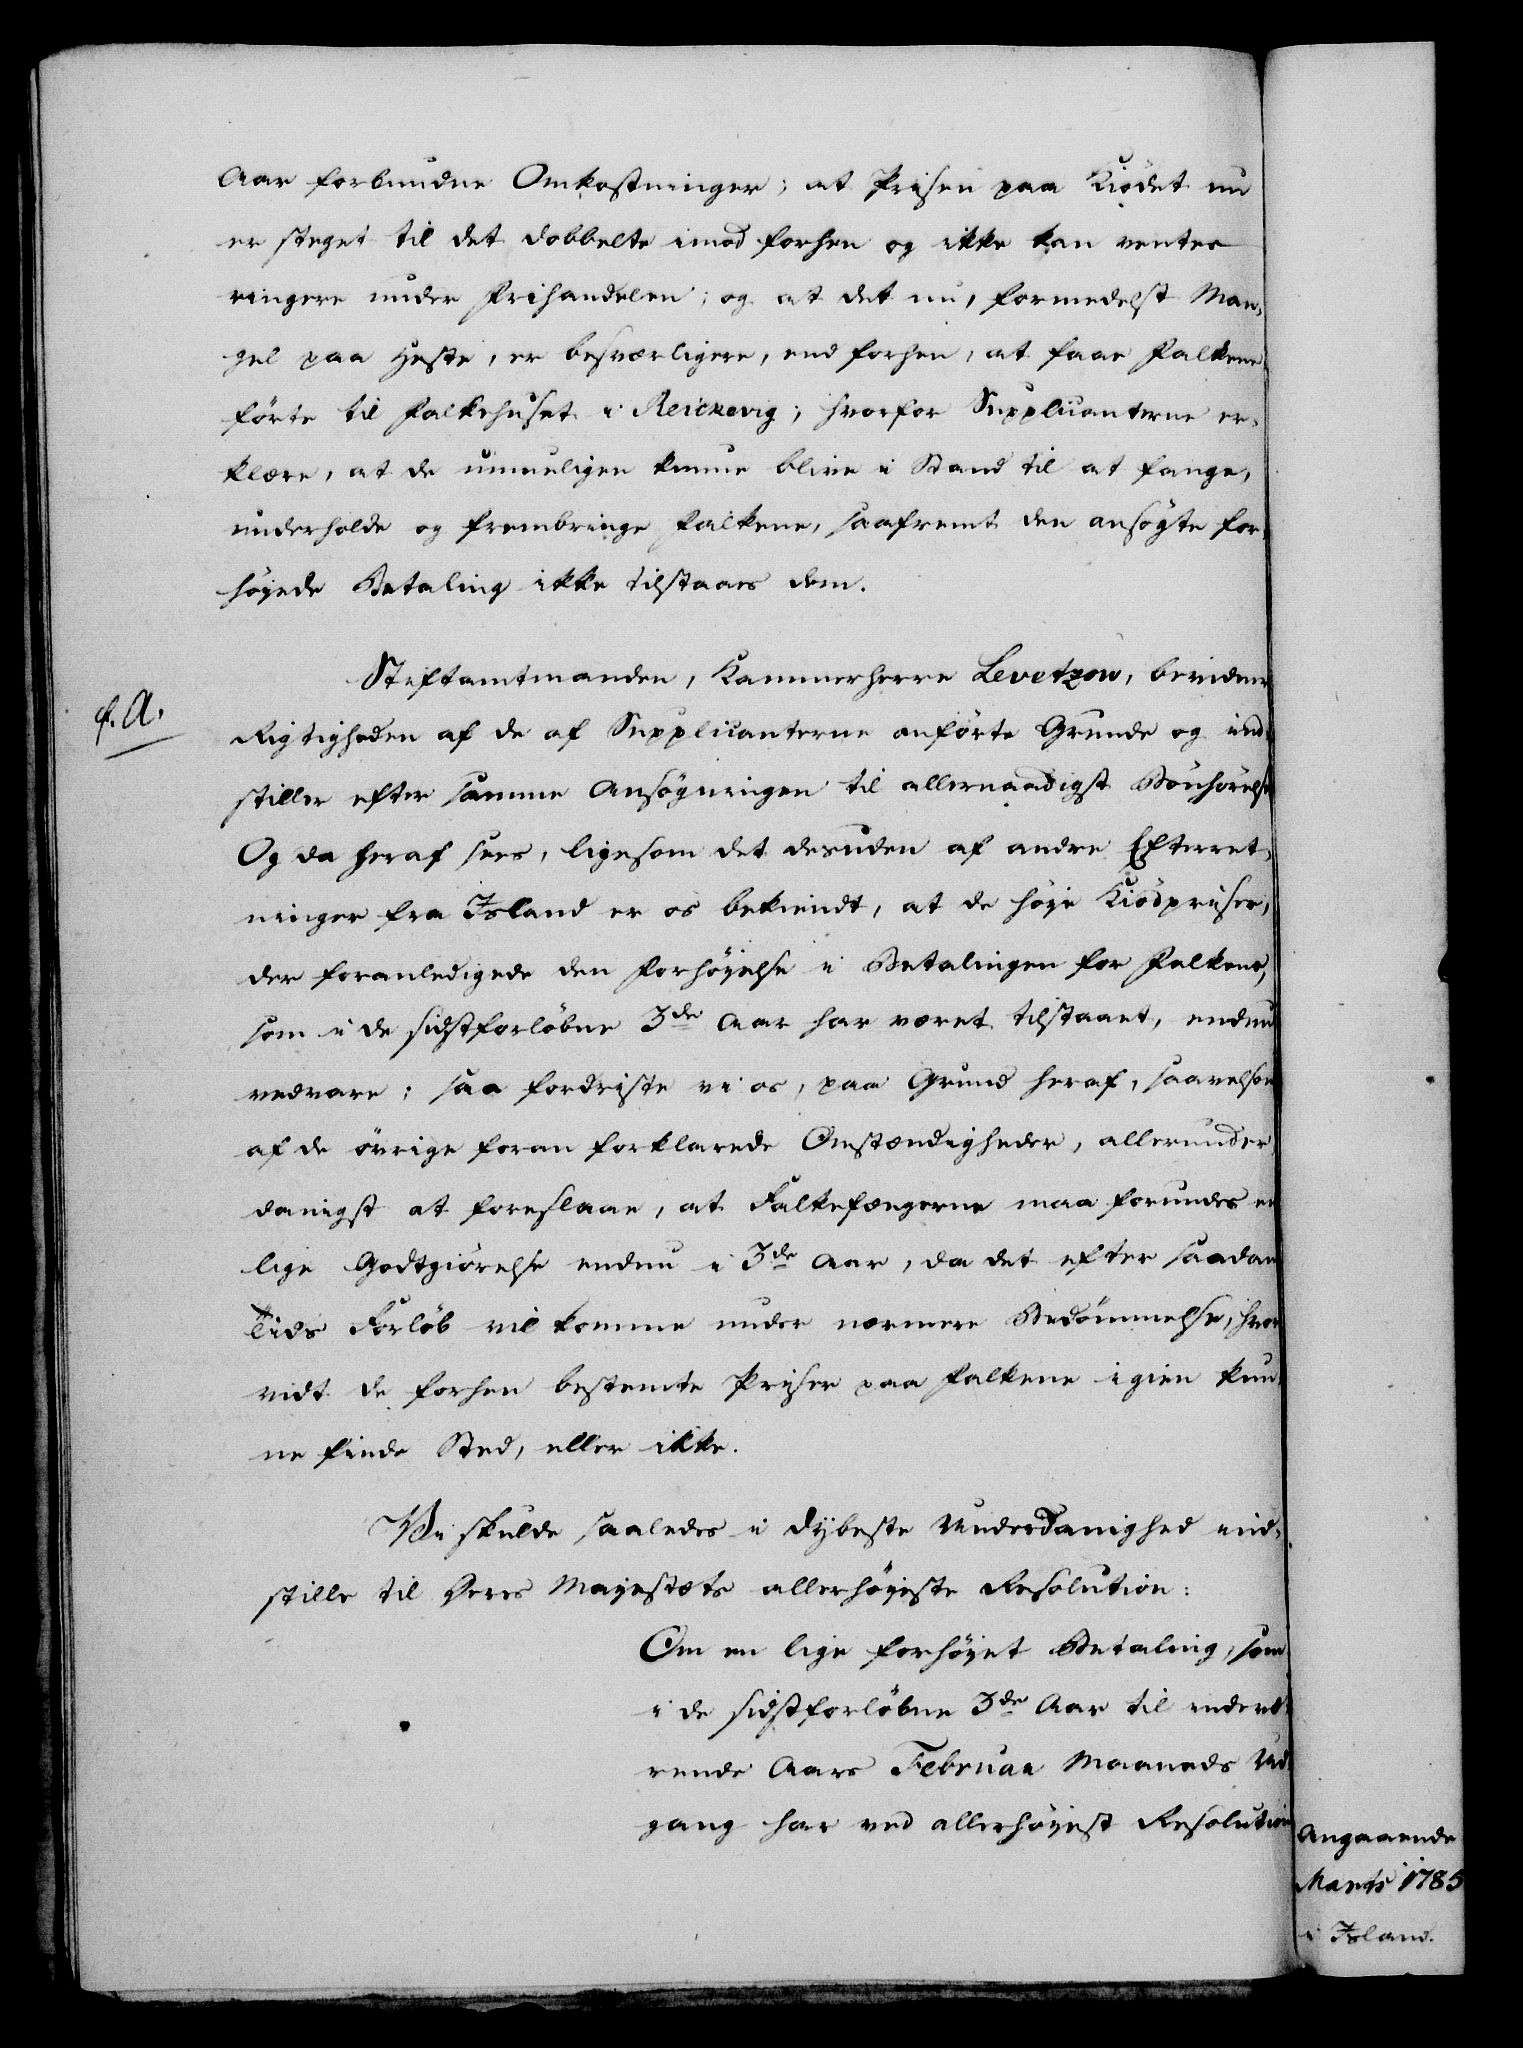 Aar forbundne Omkostninger; at Prisen paa Kiödet nu
er steget til det dobbelte imod forhen og ikke kan ventes
ringere under Frihandelen; og at det nu, formedelst Man-
gel paa Heste, er besværligere, end forhen, at faae Falkene
förte til Falkehuset i Reickevig; hvorfor Supplicanterne er-
klære, at de umueligen kunne blive i Stand til at fange,
underholde og frembringe Falkene, saafremt den ansögte for-
höyede Betaling ikke tilstaaes dem.
Stiftamtmanden, Kammerherre Levetzow, bevidner
f. A.
Rigtigheden af de af Supplicanterne anförte Grunde og ind-
stiller efter samme Ansögningen til allernaadigst Bönhörelse
Og da heraf sees, ligesom det desuden af andre Efterret-
ninger fra Island er os bekiendt, at de höye Kiödpriser,
der foranledigede den Forhöyelse i Betalingen for Falkene,
som i de sidstforlöbne 3de Aar har været tilstaaet, endnu
vedvare; saa fordriste vi os, paa Grund heraf, saavelsom
af de övrige foran forklarede Omstændigheder, allerunder-
danigst at foreslaae, at Falkefængerne maa forundes en
lige Godtgiörelse endnu i 3de Aar, da det efter saadan
Tids Forlöb vil komme under nærmere Bedömmelse, hvor-
vidt de forhen bestemte Priser paa Falkene igien kun-
ne finde Sted, eller ikke.
Vi skulde saaledes i dybeste Underdanighed ind-
stille til Deres Mayestæts allerhöyeste Resolution:
Om en lige forhöyet Betaling, som
i de sidstforlöbne 3de Aar til indevæ-
rende Aars Februar Maaneds Ud-
gang har ved allerhöyest Resolution
Angaaende
Martii 1785
i Island.